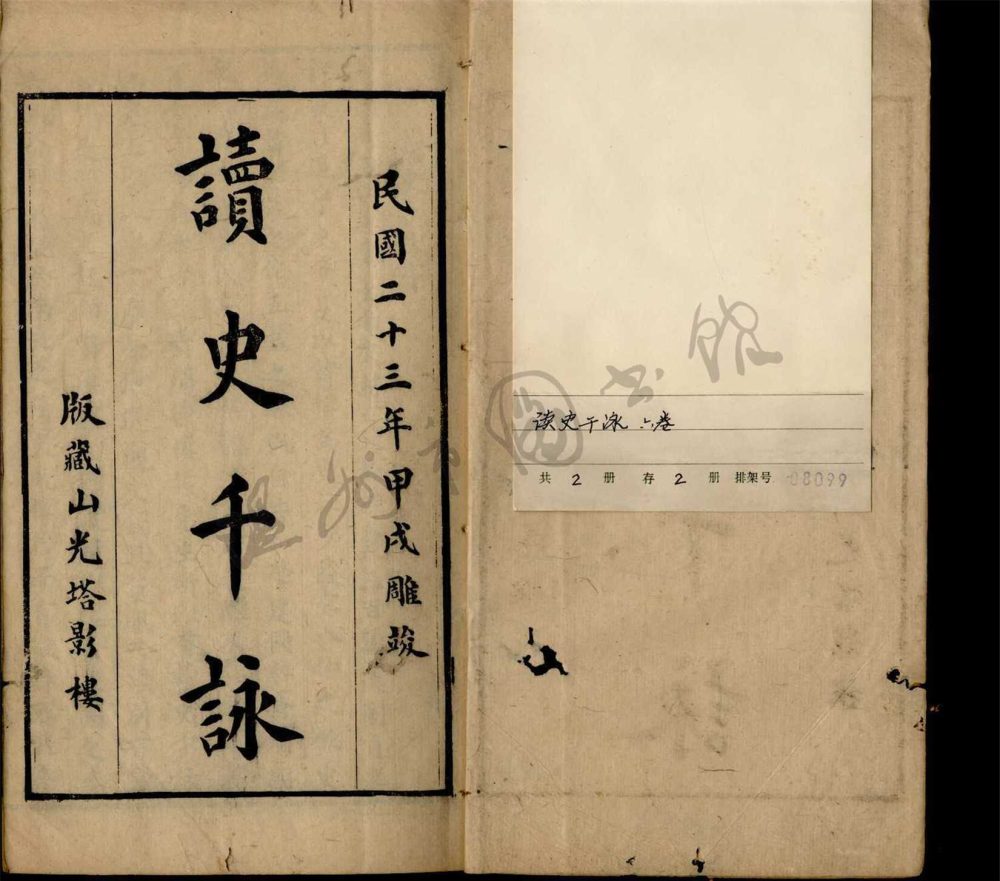 民國二十三年甲戌雕竣
讀史千詠
版藏山光塔影樓
读史千泳 六卷
共 2 册 存 2 册 排架号 08099
温州市圖书館